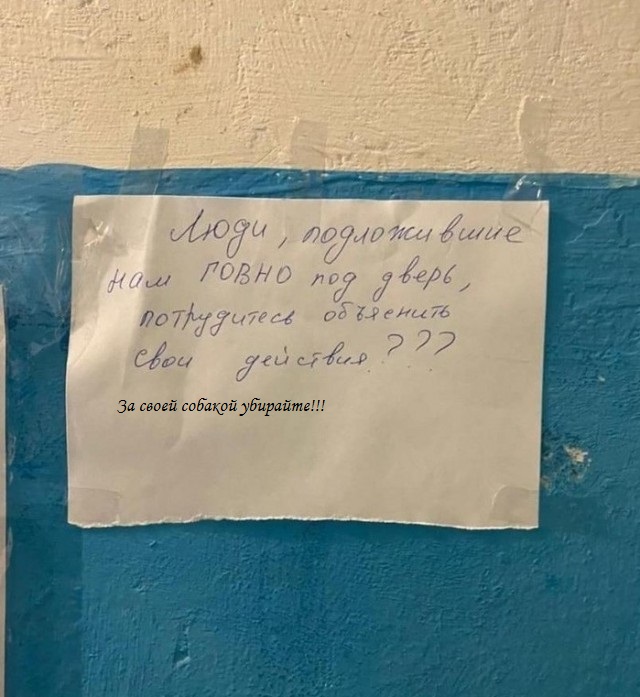 Люди, подложившие
нам ГОВНО под дверь,
потрудитесь объяснить
свои действия???
За своей собакой убирайте!!!